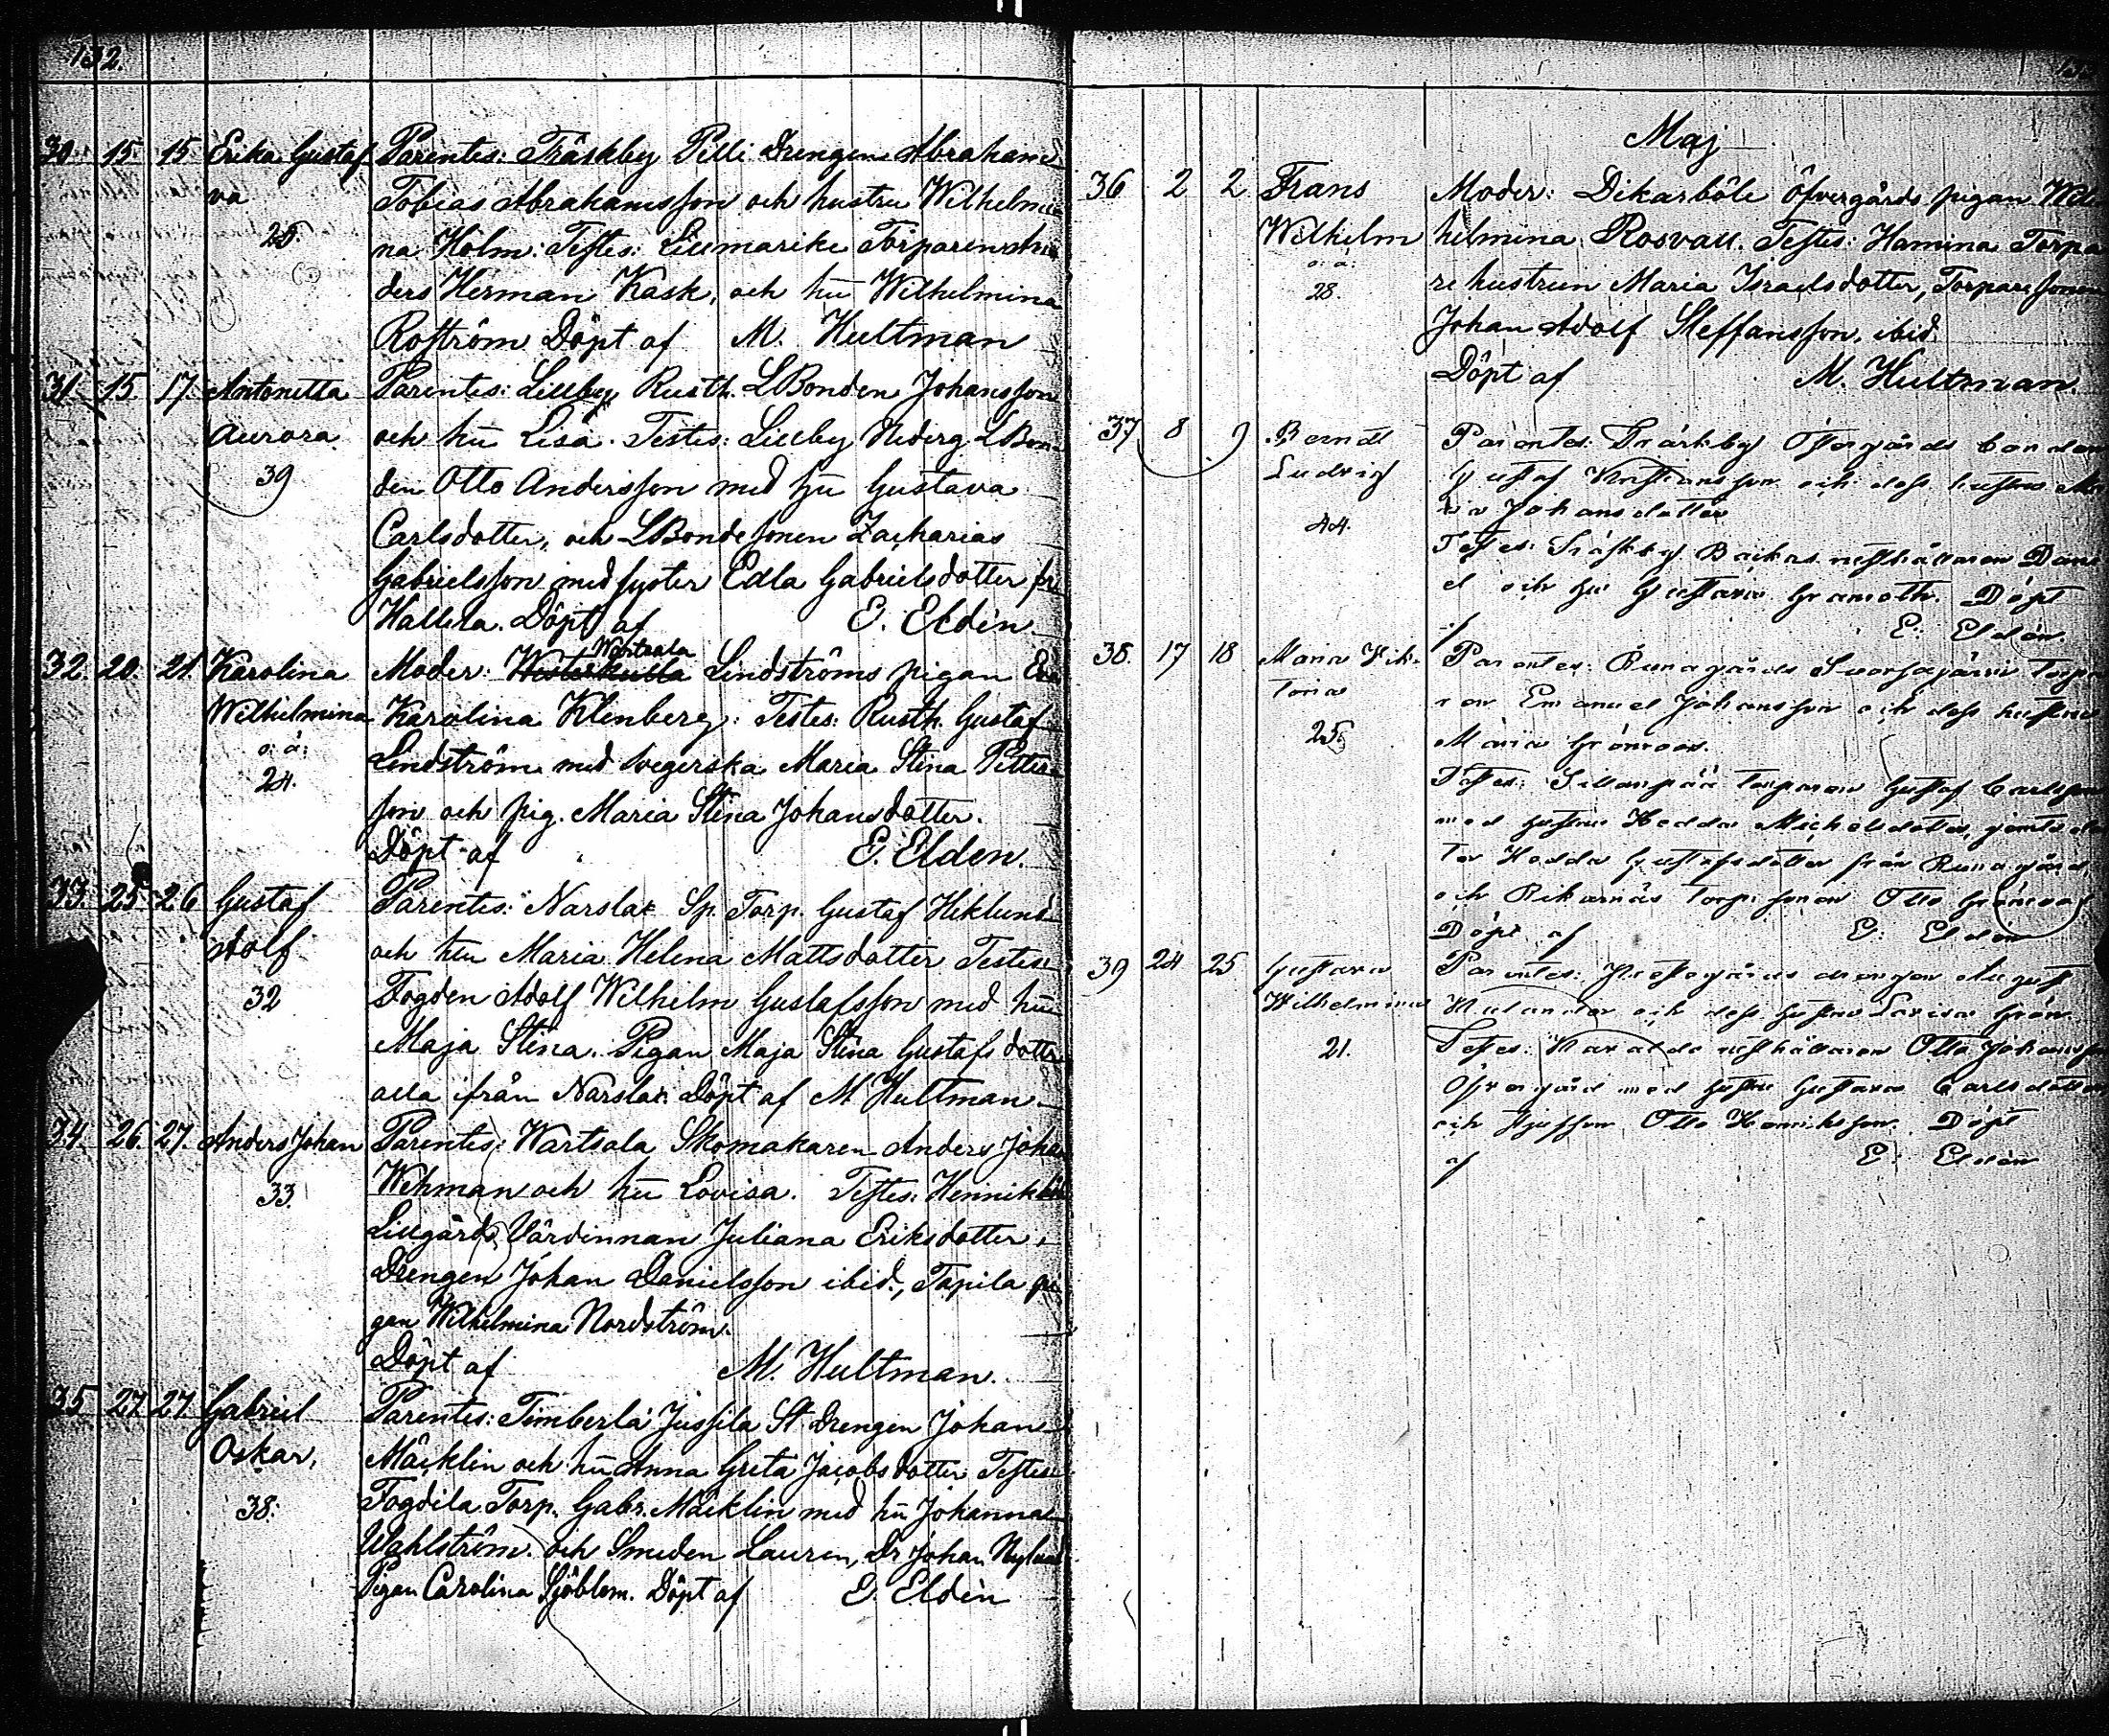 132.
30. 15. 15 Erika Gustaf Parentes: Träskby Pilli Drengen Abraham
va Tobias Abrahamsson och hustru Wilhelmi
25. na Holm: Testes: Lillmarike Torparen An
ders Herman Kask, och hu Wilhelmina
Roström Döpt af M. Hultman
31. 15. 17. Antonetta Parentes: Lillby Rusth. LBonden Johansson
Aurora och hu Lisa. Testes: Lillby Nederg LBon
39 den Otto Andersson med hu Gustava
Carlsdotter, och LBondesonen Zacharias
Gabrielsson med syster Edla Gabrielsdotter fr
Wallila. Döpt af E. Eldén
Wartsala
32. 20. 21. Karolina Moder: Westerkulla Lindströms pigan Eva
Wilhelmina Karolina Klenberg: Testes: Rusth. Gustaf
o: ä: Lindström med svegerska Maria Stina Petters
24. son och pig. Maria Stina Johansdotter.
Döpt af E. Elden.
33. 25 26 Gustaf Parentes: Narslax Sp. Torp. Gustaf Wiklund
Adolf och hu Maria Helena Mattsdotter Testes:
32 Fogden Adolf Wilhelm Gustafsson med hu
Maja Stina. Pigan Maja Stina Gustafsdotter
alla ifrån Narslax Döpt af M Hultman
34. 26. 27. Anders Johan Parentes: Wartsala Skomakaren Anders Johan
33. Wehman och hu Lovisa. Testes: Hennik
Lillgårds Värdinnan Juliana Eriksdotter,
Drengen Johan Danielsson ibid., Tapila pi
gan Wilhelmina Nordström.
Döpt af M. Hultman.
35 27. 27. Gabriel Parentes: Timberla Jussila St Drengen Johan
Oskar, Mäcklin och hu Anna Greta Jacobsdotter Testes:
38: Fogdila Torp. Gabr. Mäcklin med hu Johanna
Wahlström och Smeden Lauren, Dr Johan Nylund
Pigan Carolina Sjöblom. Döpt af E. Eldén
Maj
36 2 2 Frans Moder: Dikarböle Öfvergårds pigan Wil
Wilhelm helmina Rosvall. Testes: Hamina Torpa
o: ä: re hustrun Maria Israelsdotter, Torparesonen
28. Johan Adolf Steffansson, ibid.
Döpt af M. Hultman.
37 8 9 Berndt Parentes: Träskby Öfvergårds bonden
Ludvig Gustaf Kristiansson och dess hustru Ma
44. ria Johansdotter
Testes: Träskby Backas rusthållaren Dani
el och hu Gustava Granroth. Döpt
af E. Eldén.
38. 17 18 Maria Vik- Parentes: Runagårds torpa
toria ren Emanuel Johansson och dess hustru
25. Maria Grönroos.
Testes: Sillanpää torparen Gustaf Carlsson
med hustru Hedda Michelsdotter, jemte dot
ter Hedda Gustafsdotter från Runagård,
och torp. sonen Otto Grönroos
Döpt af E. Eldén
39 24 25 Gustava Parentes: drengen August
Wilhelmina och dess hustru Lovisa Grön.
21. Testes: rusthållaren Otto Johansson
Öfvergård med hustru Gustava Carlsdotter
och Otto Henriksson. Döpt
af E. Eldén